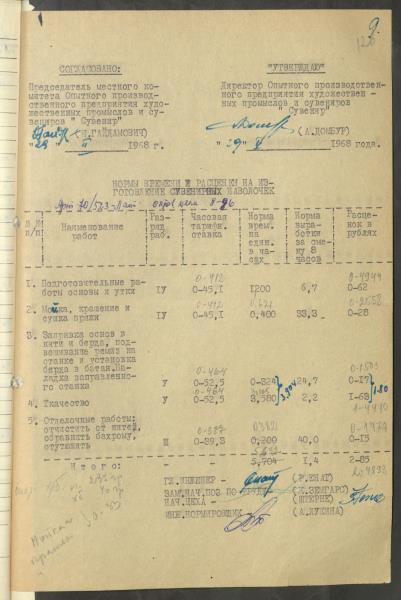 9.
СОГЛАСОВАНО:
"УТВЕРЖДАЮ"
Председатель местного ко-
митета Опытного производ-
ственного предприятия худо-
жественных промыслов и су-
вениров " Сувенир"
Директор Опытного производствен-
ного предприятия художествен -
ных промыслов и сувениров
" Сувенир"
(Н.ГАЙДАМОВИЧ)
(А.ДОМБУР)
"29" II 1968 г.
"29" 1968 года.
НОРМЫ ВРЕМЕНИ И РАСЦЕНКИ НА ИЗ-
ГОТОВЛЕНИЕ СУВЕНИРНЫХ НАВОЛОЧЕК
Арт 70/523 8-96
№№ п/п
Наименование работ
Раз- ряд раб.
Часовая тарифн. ставка
Норма врем. на един. в ча- сах
Норма выра- ботки за сме- ну 8 часов
Расце- нок в рублях
0-412 0-4944
1. Подготовительные ра-
боты основы и утки IУ 0-45,1 1200 6,7 0-62
0-412 0-2558
2. Мойка, крашение и
сушка пряжи IУ 0-45,1 0,400 33,3 0-28
3. Заправка основ в
нити и берда, под-
вешивание ремиз на
станке и установка
берда в батан. На-
ладка заправленного
станка У 0-52,5 0-324 24,7 0-17
0-464
4. Ткачество У 0-52,5 3,580 2,2 1-63
1-80
5. Отделочные работы:
отчистить от нитей,
обравнить бахрому,
отутюжить Ш 0-39,3 0,200 40,0 0-15
И т о г о : - - 5,704 1,4 2-85
ГЛ.ИНЖЕНЕР - (Р.ЕНАТ)
ЗАМ.НАЧ.ПОЗ ПО ТРУДУ (К.ЗЕМГАРС)
НАЧ.ЦЕХА - (ШТЕРНЕ)
ИНЖ.НОРМИРОВЩИК - (А.ЛУКИНА)